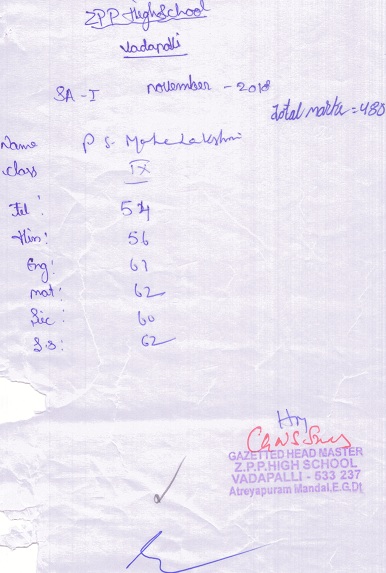 ZPP High School
Vadapalli
SA-I November - 2018
Total marks = 480
Name P S. Maha Lakshmi
class IX
Tel: 54
Hin: 56
Eng: 61
mat: 62
Sic: 60
S.S: 62
Hm
GAZETTED HEAD MASTER
Z.P.P.HIGH SCHOOL
VADAPALLI - 533 237
Atreyapuram Mandal.E.G.Dt